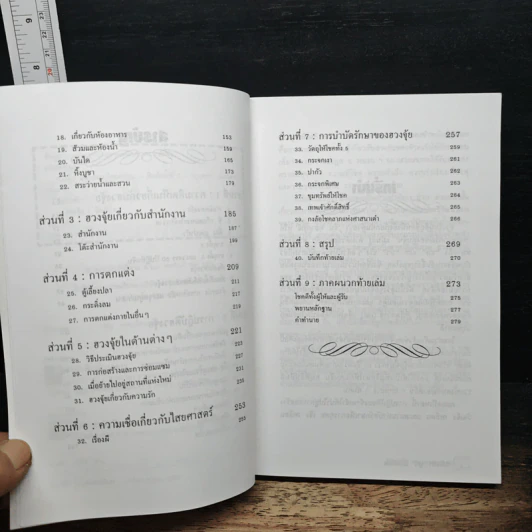 18. เกี่ยวกับห้องอาหาร 153
19. ส้วมและห้องน้ำ 159
20. บันได 165
21. หิ้งบูชา 173
22. สระว่ายน้ำและสวน 179
ส่วนที่ 3 : ฮวงจุ้ยเกี่ยวกับสำนักงาน 185
23. สำนักงาน 197
24. โต๊ะสำนักงาน 199
ส่วนที่ 4 : การตกแต่ง 209
25. ตู้เลี้ยงปลา 211
26. กระดิ่งลม 217
27. การตกแต่งภายในอื่นๆ 219
ส่วนที่ 5 : ฮวงจุ้ยในด้านต่างๆ 221
28. วิธีประเมินฮวงจุ้ย
29. การก่อสร้างและการซ่อมแซม
30. เมื่อย้ายไปอยู่สถานที่แห่งใหม่
31. ฮวงจุ้ยเกี่ยวกับความรัก
ส่วนที่ 6 : ความเชื่อเกี่ยวกับไสยศาสตร์ 253
32. เรื่องผี
ส่วนที่ 7 : การบำบัดรักษาของฮวงจุ้ย 257
33. วัตถุให้โชคทั้ง 8
34. กระจกเงา 261
35. ปากัว 261
36. กระจกพิเศษ 262
37. ขุมทรัพย์ให้โชค 263
38. เทพเจ้าศักดิ์สิทธิ์ 265
39. กงล้อโชคลาภแห่งศาสนาเต๋า 266
ส่วนที่ 8 : สรุป 269
40. บันทึกท้ายเล่ม 270
ส่วนที่ 9 : ภาคผนวกท้ายเล่ม 273
โชคดีทั้งผู้ให้และผู้รับ 275
พยานหลักฐาน 277
คำทำนาย 279